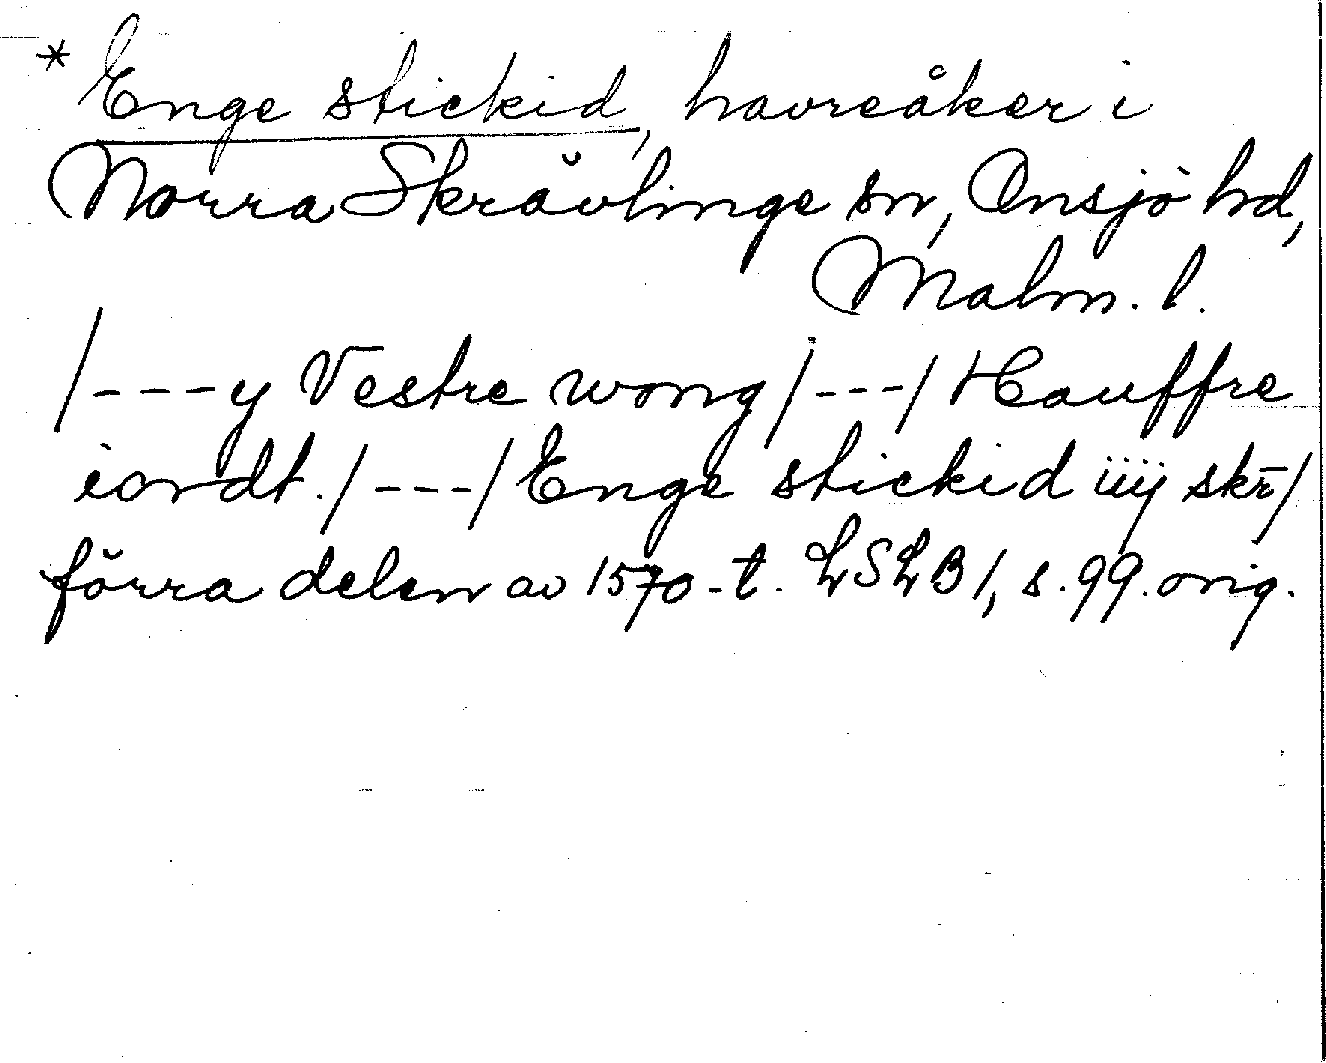 * Enge stickid, havreåker i
Norra Skrävlinge sn, Onsjö hd,
Malm. l.
/---y Vestre wong/---/Hauffre
iordt./---/Enge stickid iiij skr̄/
förra delen av 1570-t. LSLB 1, s. 99. orig.